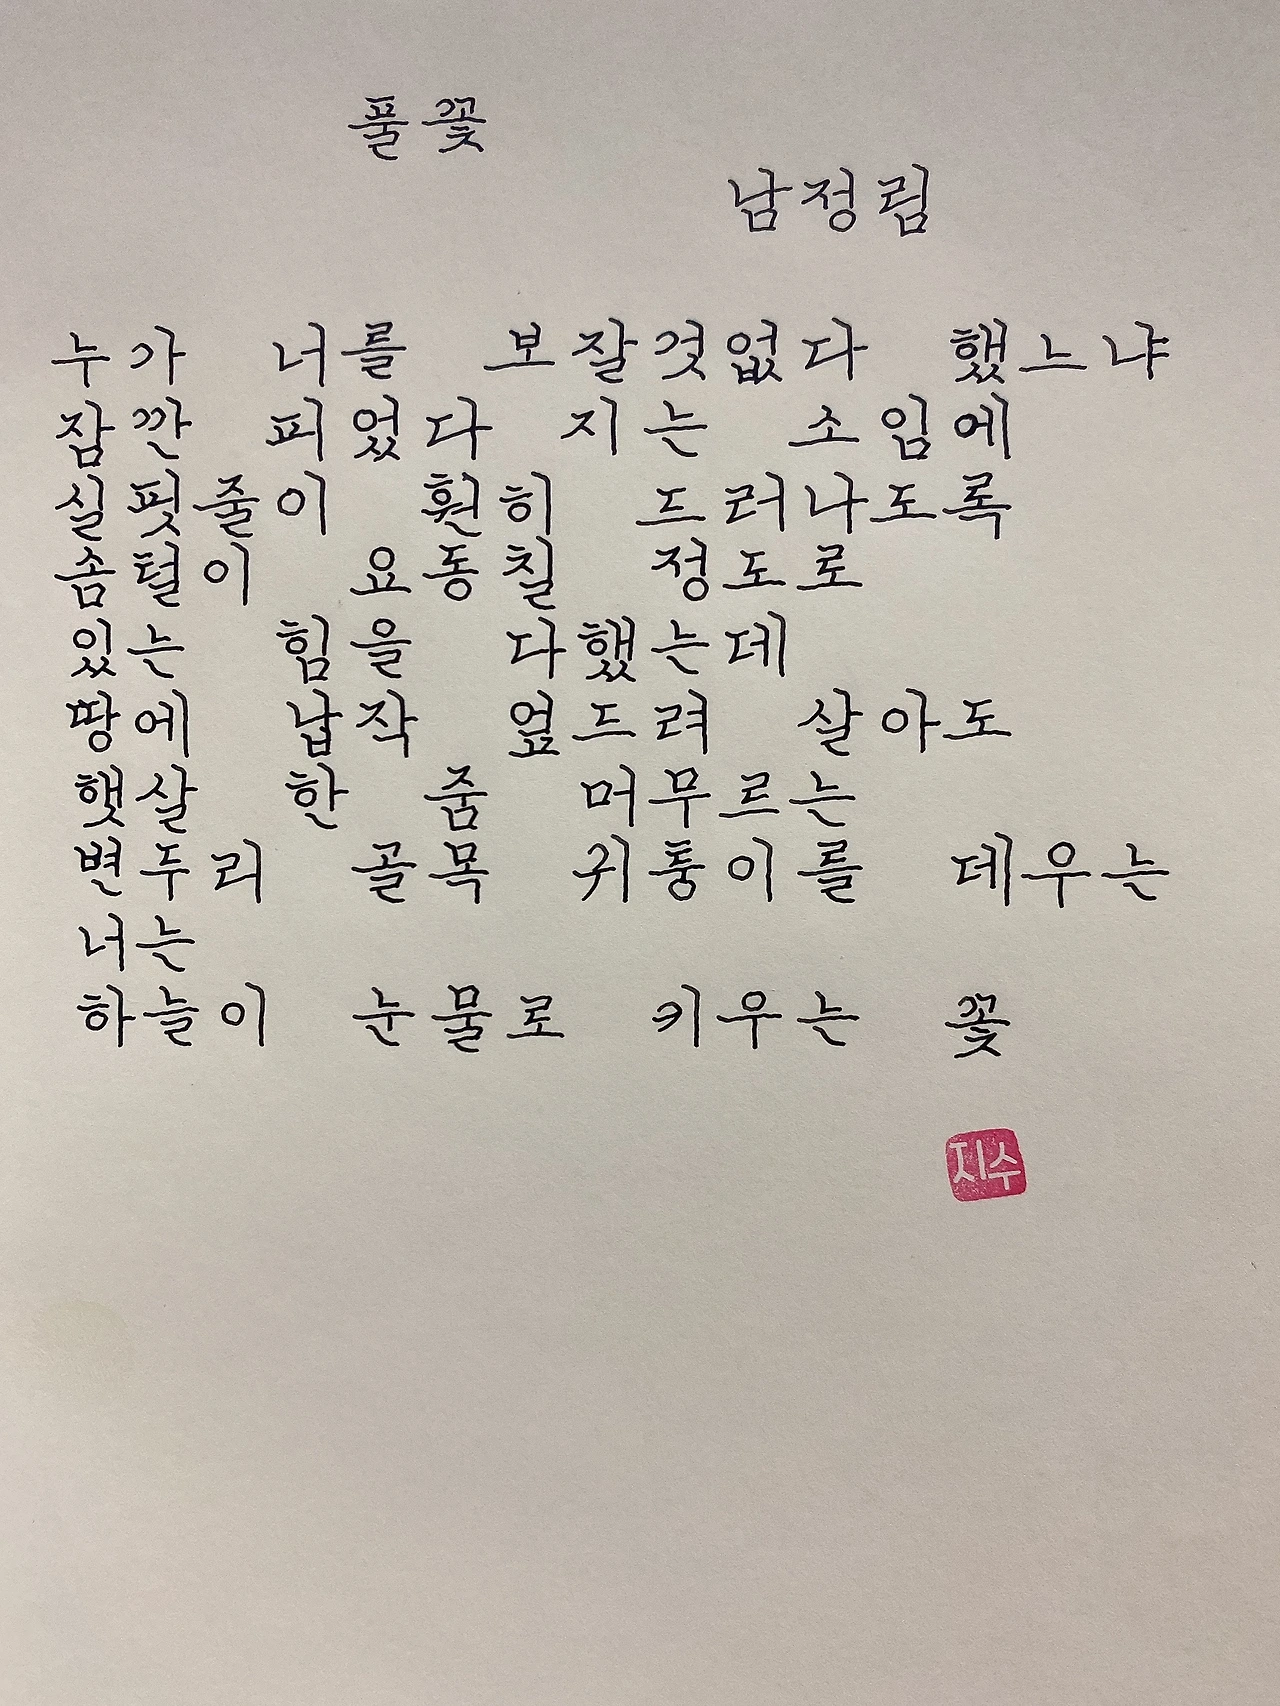 풀꽃
남정림
누가 너를 보잘것없다 했느냐
잠깐 피었다 지는 소임에
실핏줄이 훤히 드러나도록
솜털이 요동칠 정도로
있는 힘을 다했는데
땅에 납작 엎드려 살아도
햇살 한 줌 머무르는
변두리 골목 귀퉁이를 데우는
너는
하늘이 눈물로 키우는 꽃
지수